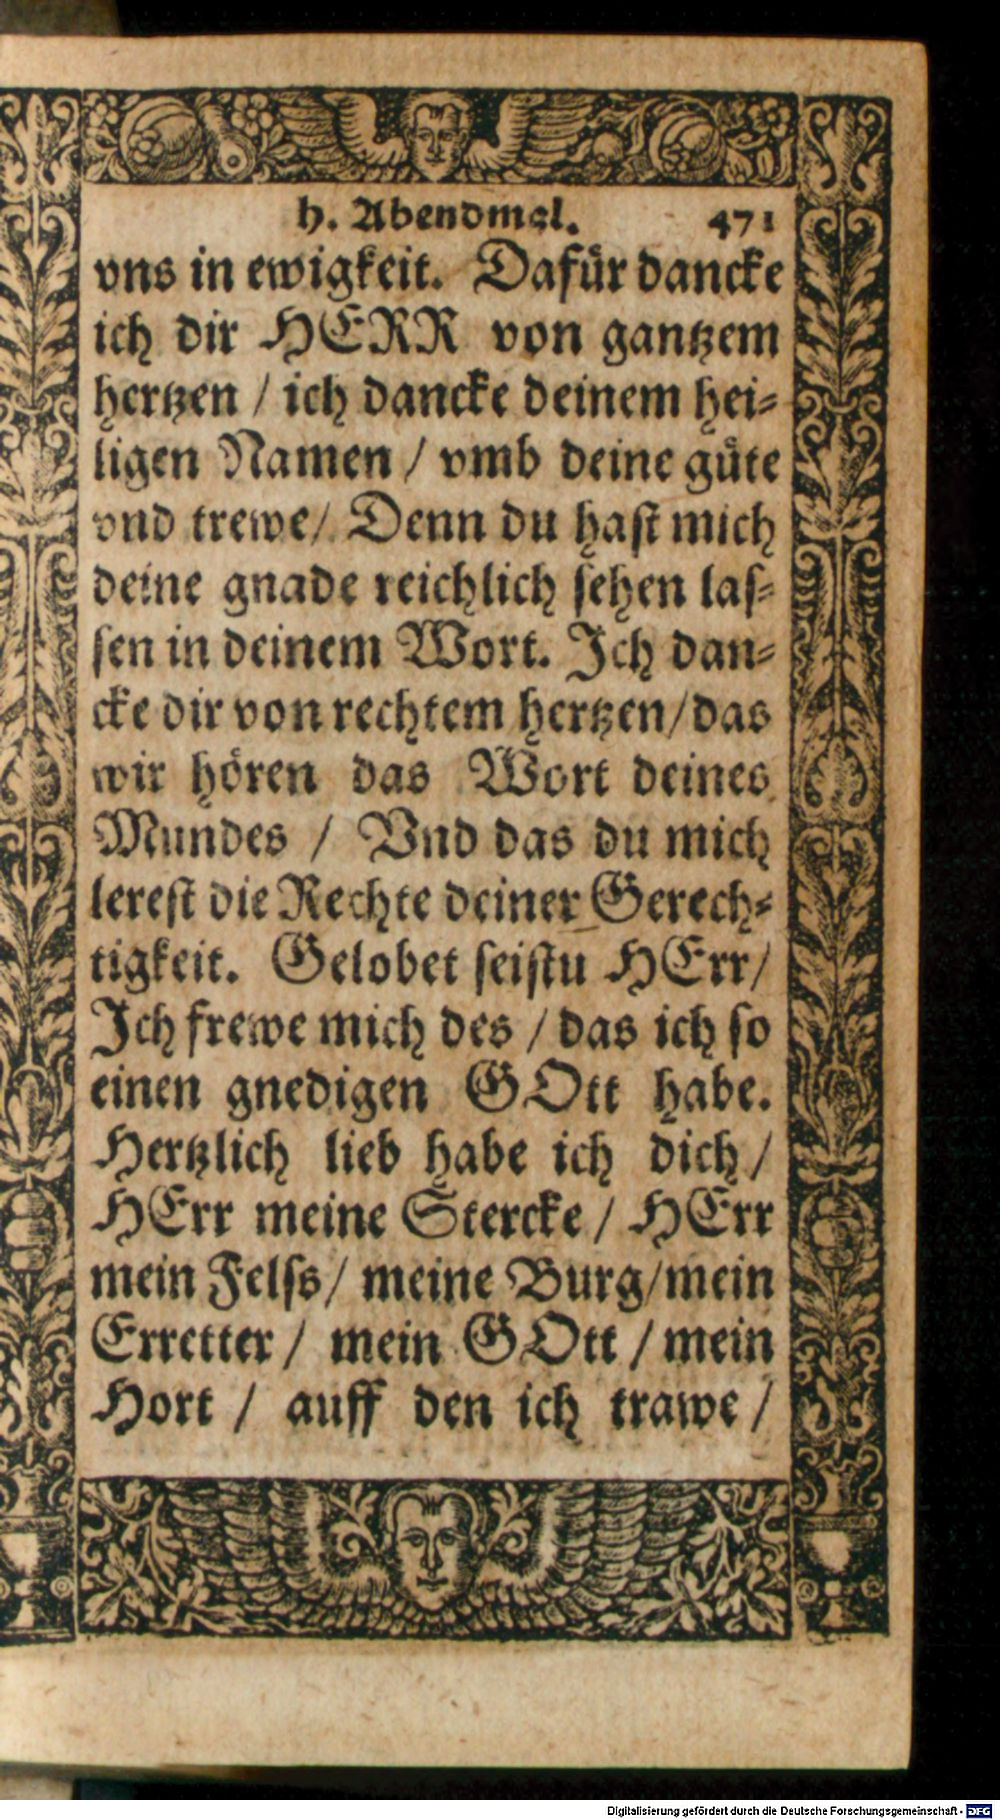 h. Abendmal. 471
vns in ewigkeit. Dafür dancke
ich dir HERR von gantzem
hertzen / ich dancke deinem hei-
ligen Namen / vmb deine güte
vnd trewe / Denn du hast mich
deine gnade reichlich sehen las-
sen in deinem Wort. Ich dan-
cke dir von rechtem hertzen / das
wir hören das Wort deines
Mundes / Vnd das du mich
lerest die Rechte deiner Gerech-
tigkeit. Gelobet seistu HErr /
Ich frewe mich des / das ich so
einen gnedigen GOtt habe.
Hertzlich lieb habe ich dich /
HErr meine Stercke / HErr
mein Felss / meine Burg / mein
Erretter / mein GOtt / mein
Hort / auff den ich trawe /
Digitalisierung gefördert durch die Deutsche Forschungsgemeinschaft - DFG